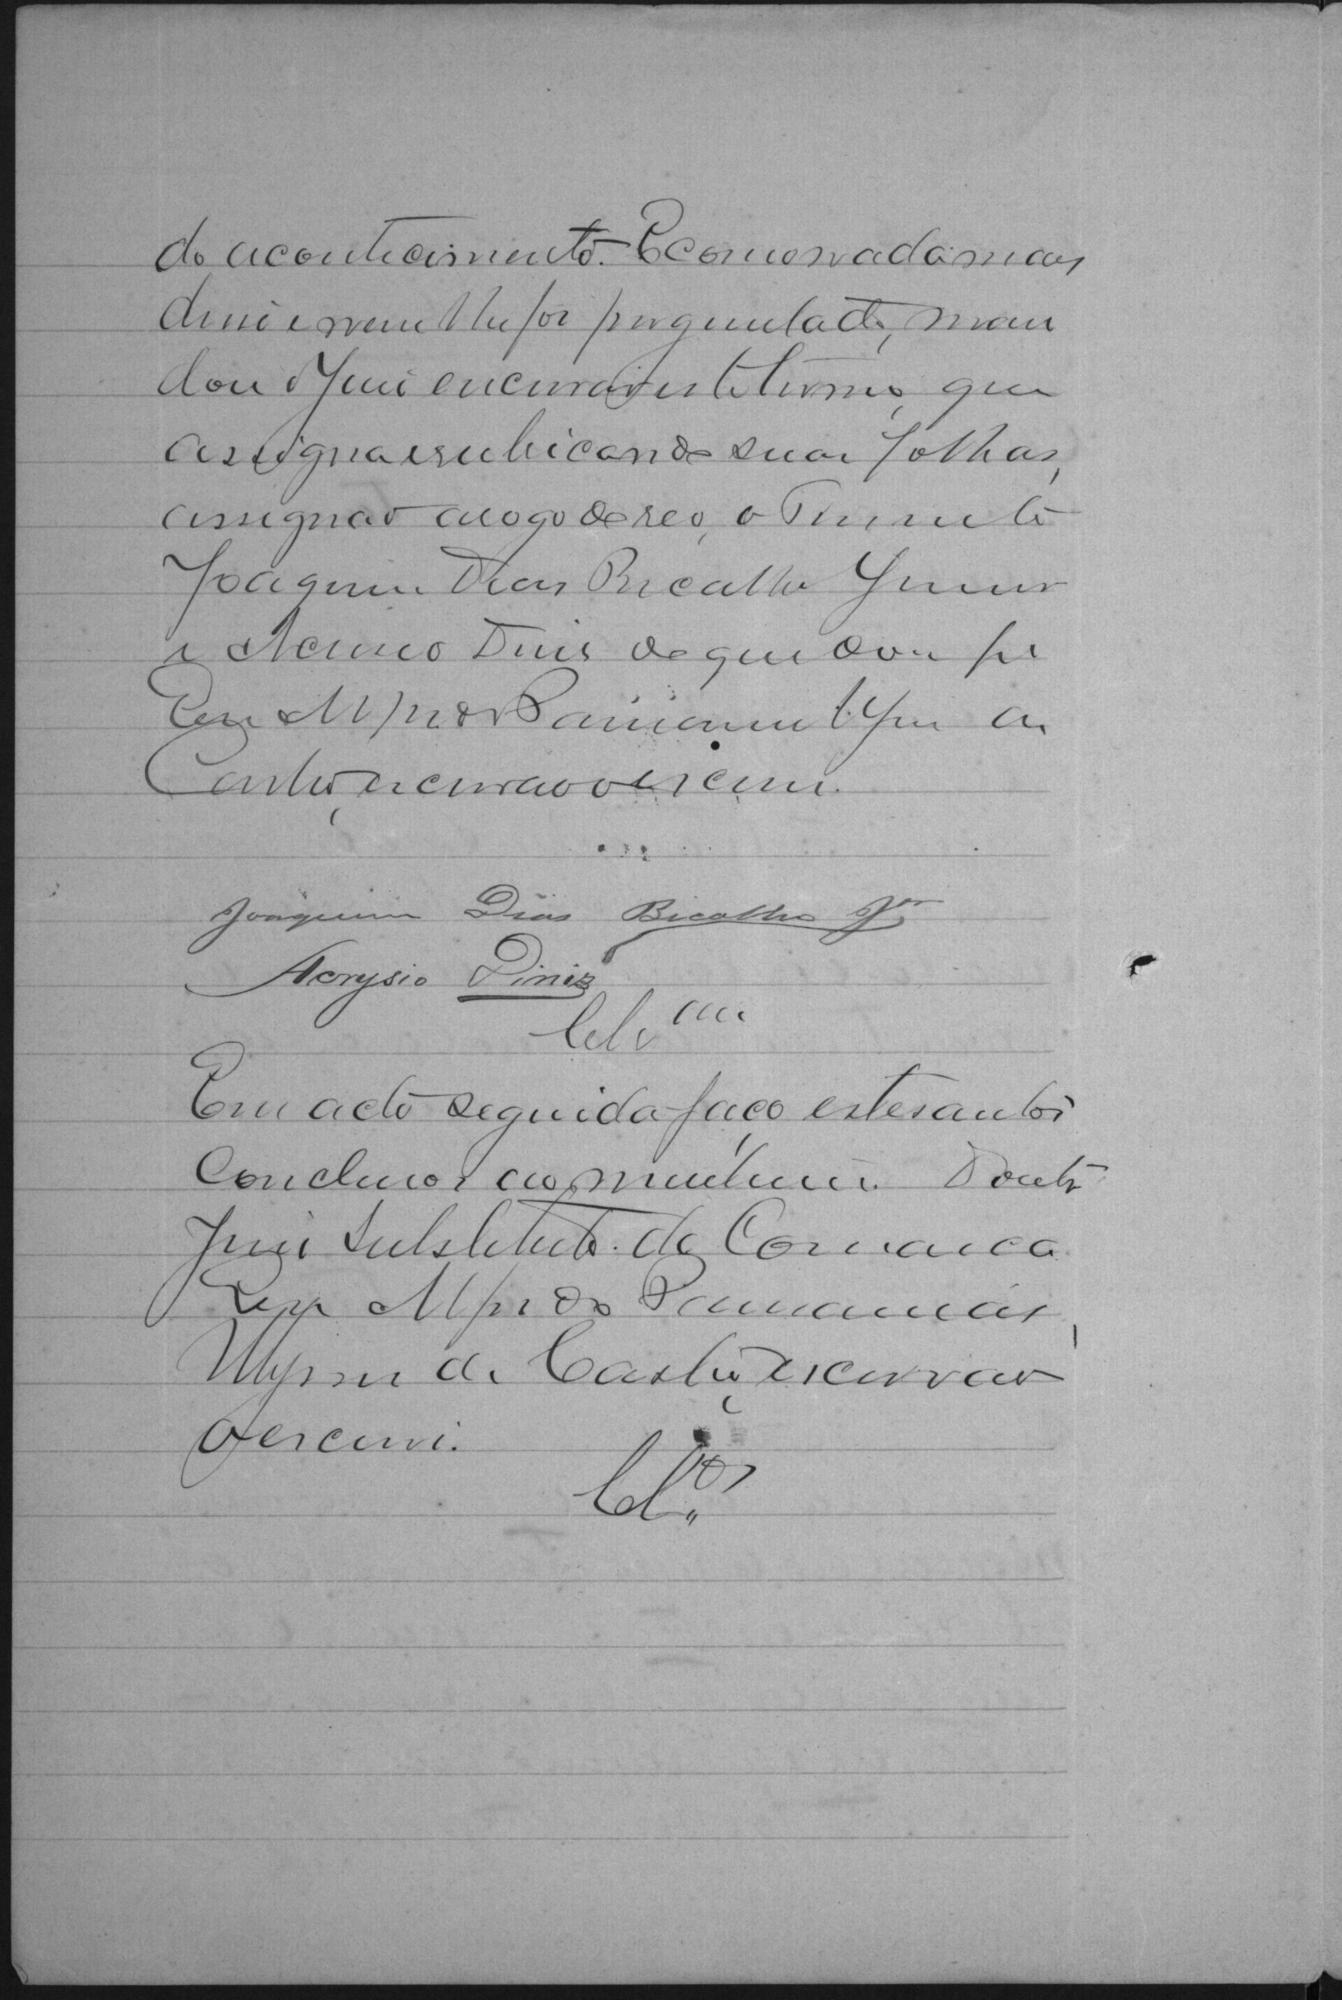 do acontecimento. E como nada mais
disse e nem lhe foi perguntado, man
dou o Juiz encerrar este termo, que
assigna e rubricando suas folhas,
assignão a rogo do reo, o Tenente
Joaquim Dias Bicalho Junior
e Acrysio Dinis de que dou fé
Eu
Castro, escrivão o escrevi.
Joaquim Dias Bicalho Jor
Acrysio Diniz
Clsam
Em acto seguida faço estes autos
Conclusos ao meritissimo Doutor
Juiz Substituto da Comarca
Eu
de Castro, escrivão
o escrevi.
Clos